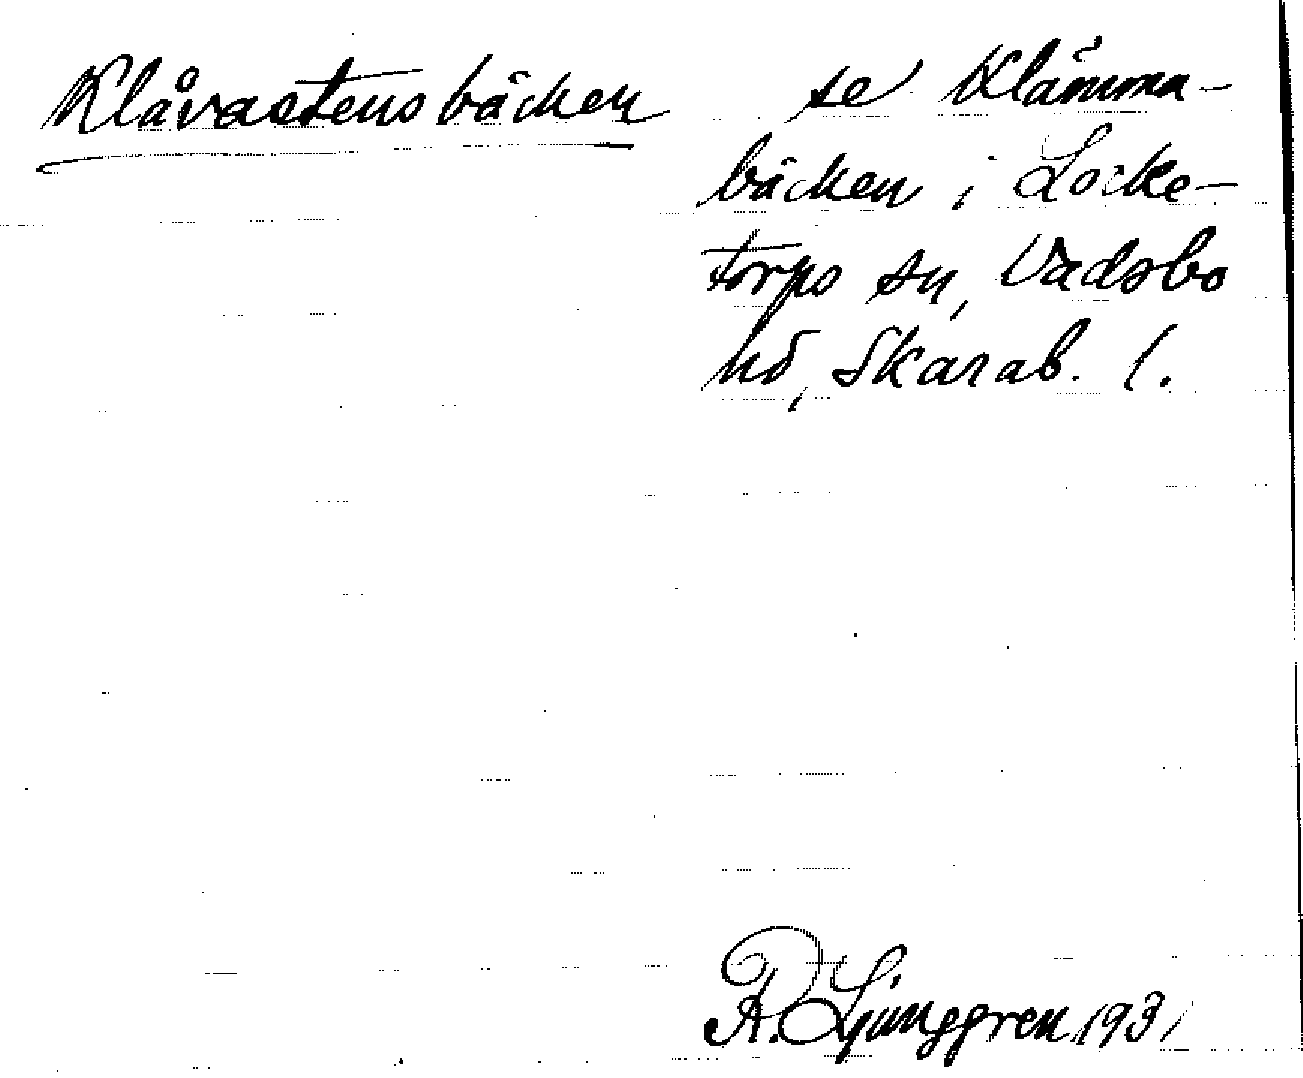 Klåvastensbäcken
se Klämma-
bäcken i Locke-
torps sn, Vadsbo
hd, Skarab. l.
R. Ljunggren 1931